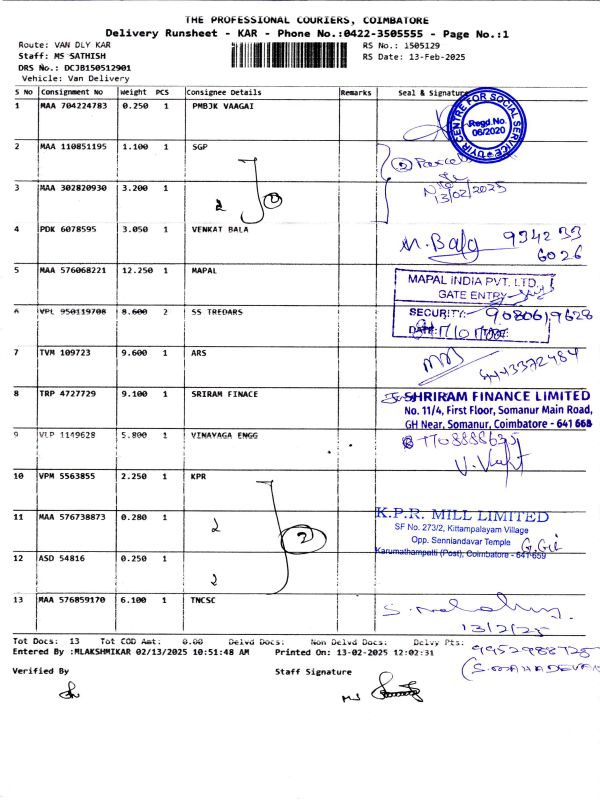 THE PROFESSIONAL COURIERS, COIMBATORE
Delivery Runsheet - KAR - Phone No.:0422-3505555 - Page No.:1
Route: VAN DLY KAR
RS No.: 1505129
Staff: MS SATHISH
RS Date: 13-Feb-2025
DRS No.: DCJB150512901
Vehicle: Van Delivery
S No Consignment No Weight PCS Consignee Details Remarks Seal & Signature
1 MAA 704224783 0.250 1 PMBJK VAAGAI
UYIR CENTRE FOR SOCIAL SERVICE
Regd.No.
06/2020
2 MAA 110851195 1.100 1 SGP
2
3 MAA 302820930 3.200 1
2
13/02/2025
4 PDK 6078595 3.050 1 VENKAT BALA
M. Bala 934233
6026
5 MAA 576068221 12.250 1 MAPAL
MAPAL INDIA PVT. LTD.
GATE ENTRY
6 VPL 950119708 8.600 2 SS TREDARS
SECURITY: 9080619628
DATE:
7 TVM 109723 9.600 1 ARS
8 TRP 4727729 9.100 1 SRIRAM FINACE
SHRIRAM FINANCE LIMITED
No. 11/4, First Floor, Somanur Main Road,
GH Near, Somanur, Coimbatore - 641 668
9 VLP 1149628 5.800 1 VINAYAGA ENGG
10 VPM 5563855 2.250 1 KPR
11 MAA 576738873 0.280 1
2
2
K.P.R. MILL LIMITED
SF No. 273/2, Kittampalayam Village
Opp. Senniandavar Temple
Karumathampatti (Post), Coimbatore - 641 659
12 ASD 54816 0.250 1
2
13 MAA 576859170 6.100 1 TNCSC
13/2/25
Tot Docs: 13 Tot COD Amt: 0.00 Delvd Docs: Non Delvd Docs: Delvy Pts:
9952988725
Entered By :MLAKSHMIKAR 02/13/2025 10:51:48 AM Printed On: 13-02-2025 12:02:31
(S.MAHADEVAN
Verified By Staff Signature
MS